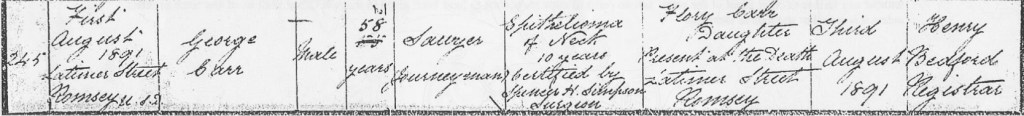 245
First
August
1891
Latimer Street
Romsey U.S.D.
George
Carr
Male
58
years
Sawyer
(Journeyman)
Epithelioma
of Neck
10 years
Certified by
Spencer H. Simpson
Surgeon
Flory Carr
Daughter
Present at the Death
Latimer Street
Romsey
Third
August
1891
Henry
Bedford
Registrar